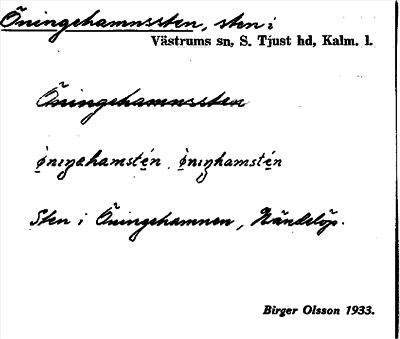 Öningehamnssten, sten i
Västrums sn, S. Tjust hd, Kalm. l.
Öningehamnssten
Sten i Öningehamnen, Händelöp.
Birger Olsson 1933.